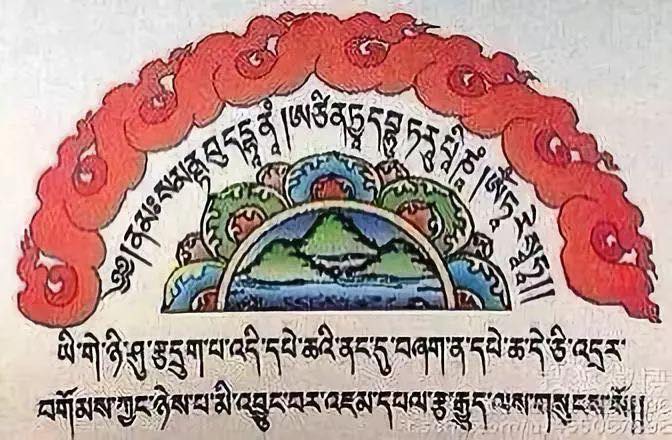 ༄༅། །ནམཿསམནྟབུདདྷཱནཱཾ།
ཡི་གེ་ཉི་ཤུ་རྩ་དྲུག་པ་འདི་དཔེ་ཆའི་ནང་དུ་བཞག་ན་དཔེ་ཆ་དེ་ཅི་འདྲར་
བགོམས་ཀྱང་ཉེས་པ་མི་འབྱུང་བར་འཇམ་དཔལ་རྩ་རྒྱུད་ལས་གསུངས་སོ།།